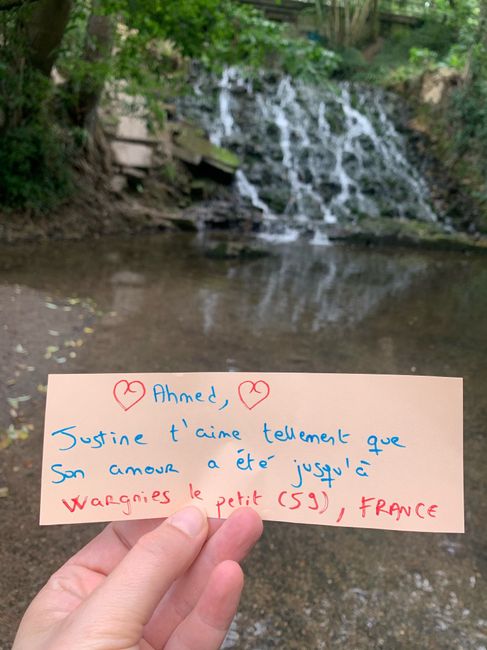 Ahmed,
Justine t'aime tellement que
son amour a été jusqu'à
Wargnies le petit (59), FRANCE